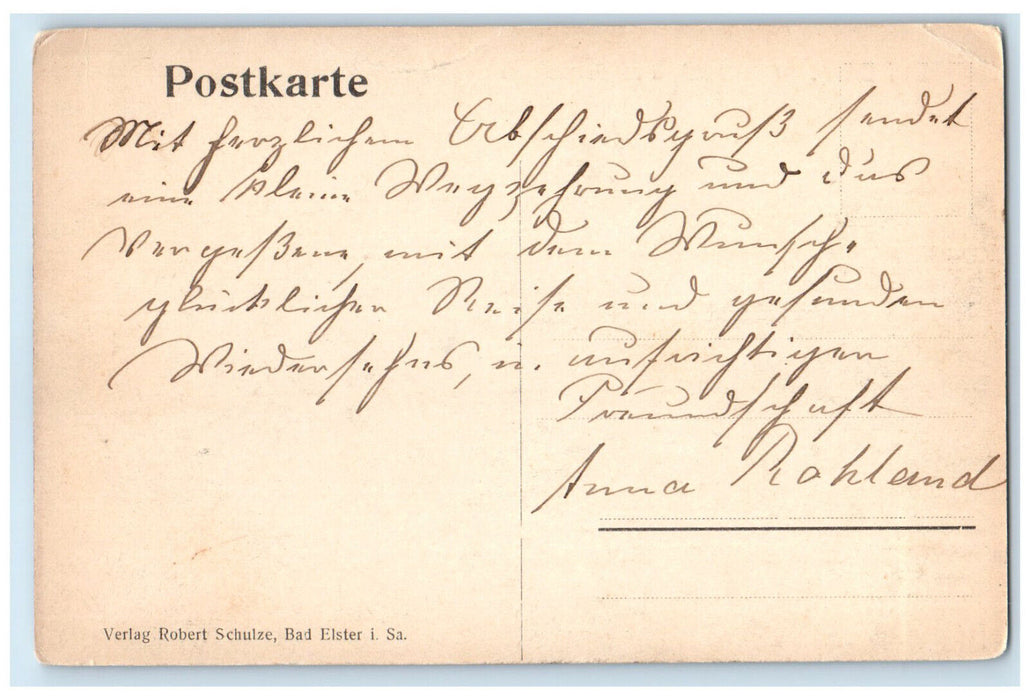 Postkarte
Mit herzlichem Abschiedsgruß sendet
eine kleine Wegzehrung und das
Vergeßene, mit dem Wunsche
glücklicher Reise und gesunden
Wiedersehns, in aufrichtiger
Freundschaft
Anna Rohland
Verlag Robert Schulze, Bad Elster i. Sa.